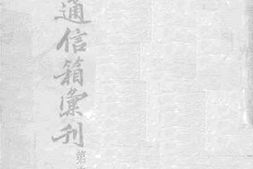 通信箱彙刊
第